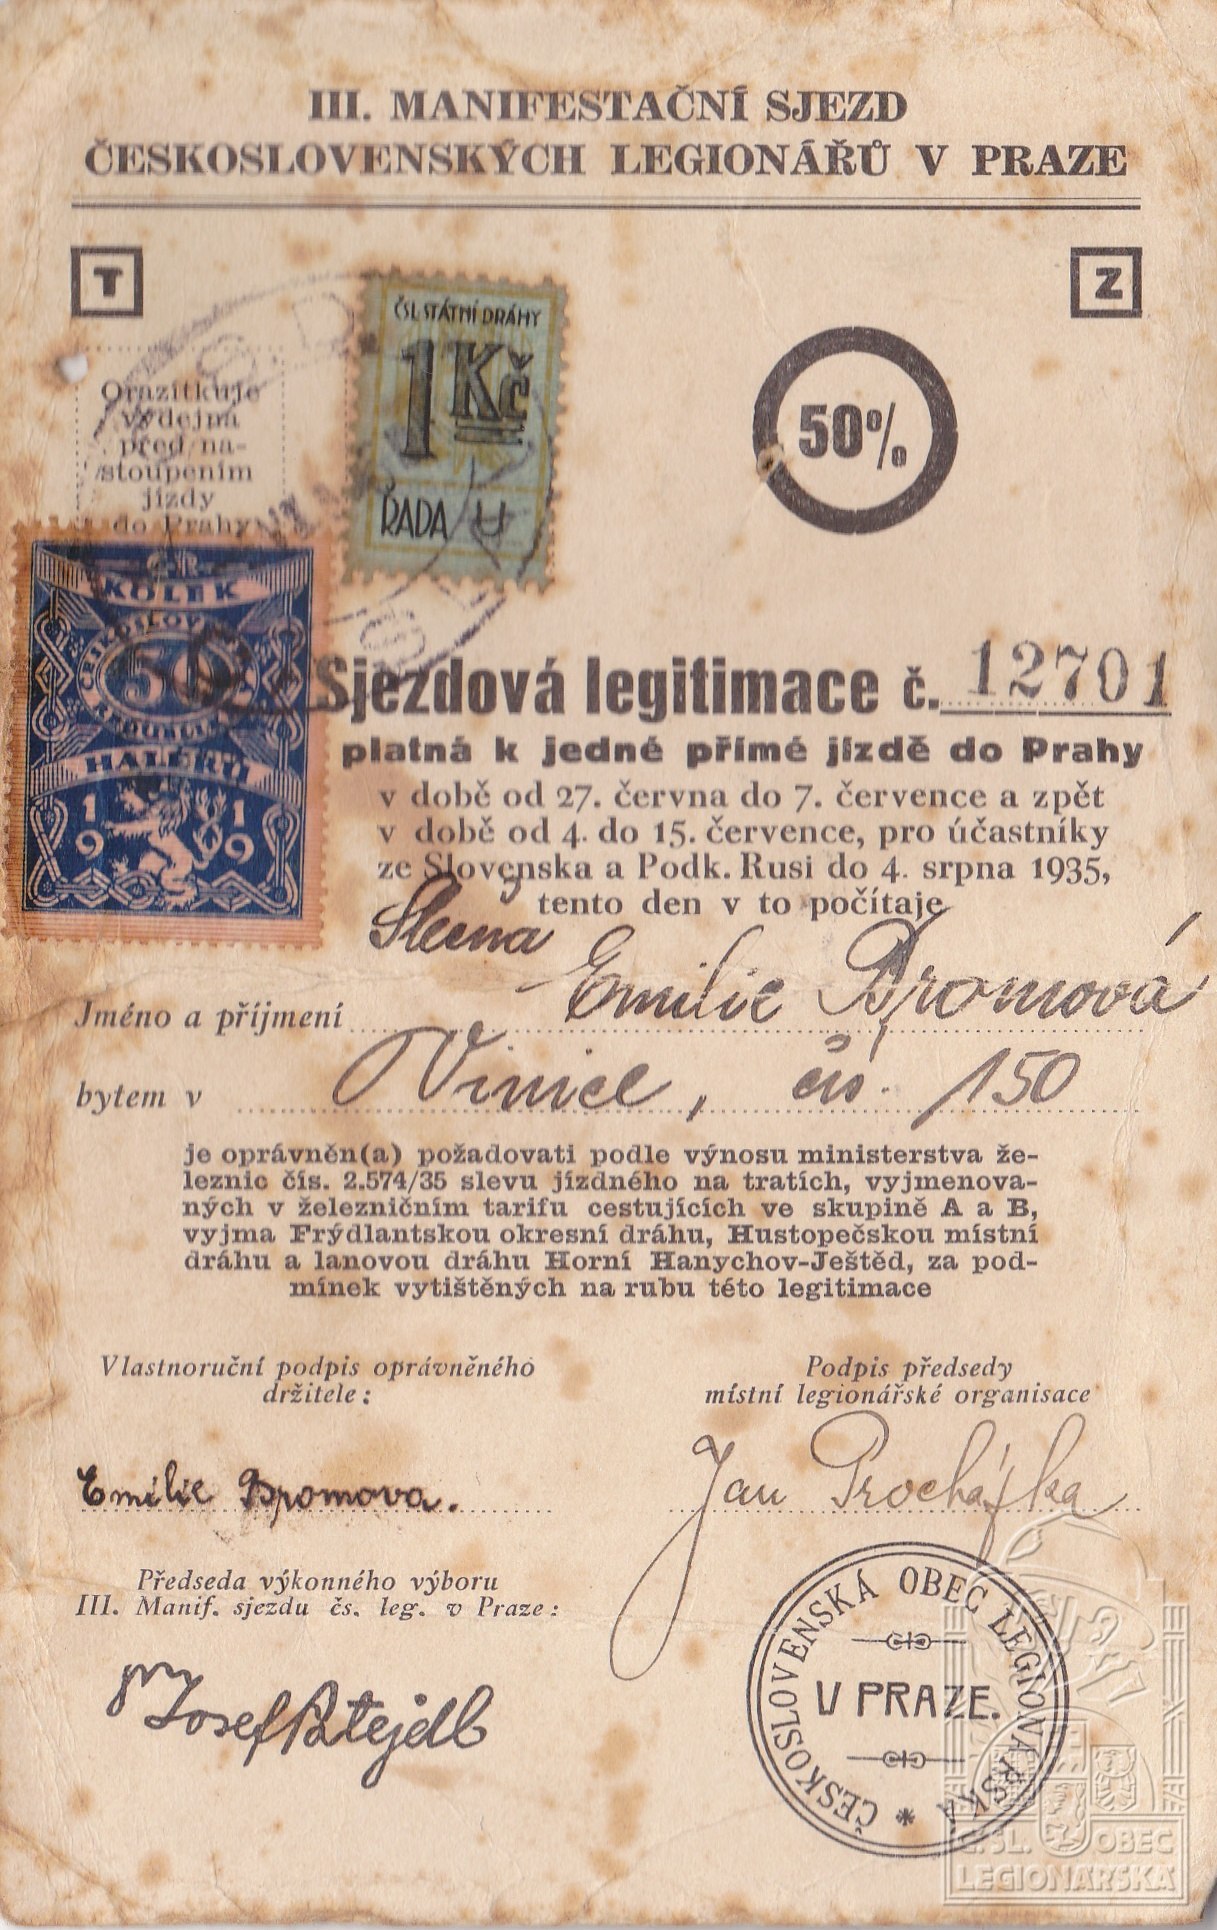 III. MANIFESTAČNÍ SJEZD
ČESKOSLOVENSKÝCH LEGIONÁŘŮ V PRAZE
T
Z
Orazítkuje
výdejna
před na-
stoupením
jízdy
do Prahy
ČSL. STÁTNÍ DRÁHY
1 Kč
ŘADA U
50%
KOLEK
ČESKOSLOVENSKÁ
50
REPUBLIKA
HALÉŘŮ
1919
Sjezdová legitimace č. 12701
platná k jedné přímé jízdě do Prahy
v době od 27. června do 7. července a zpět
v době od 4. do 15. července, pro účastníky
ze Slovenska a Podk. Rusi do 4. srpna 1935,
tento den v to počítaje
Slečna
Jméno a příjmení Emilie Bromová
bytem v Vinice, čís. 150
je oprávněn(a) požadovati podle výnosu ministerstva že-
leznic čís. 2.574/35 slevu jízdného na tratích, vyjmenova-
ných v železničním tarifu cestujících ve skupině A a B,
vyjma Frýdlantskou okresní dráhu, Hustopečskou místní
dráhu a lanovou dráhu Horní Hanychov-Ještěd, za pod-
mínek vytištěných na rubu této legitimace
Vlastnoruční podpis oprávněného
držitele:
Podpis předsedy
místní legionářské organisace
Emilie Bromova.
Jan Procházka
Předseda výkonného výboru
III. Manif. sjezdu čs. leg. v Praze:
Josef
ČESKOSLOVENSKÁ OBEC LEGIONÁŘSKÁ
V PRAZE.
Č.SL. OBEC
LEGIONÁŘSKÁ